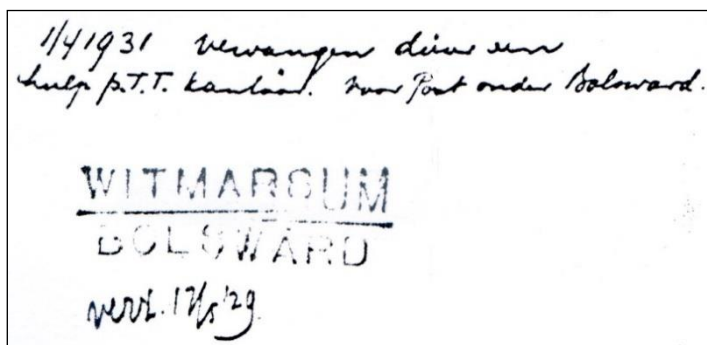 1/4 1931 vervangen door een
hulp p.T.T. kantoor. voor Post onder Bolsward.
WITMARSUM
BOLSWARD
verz. 17/5 '29